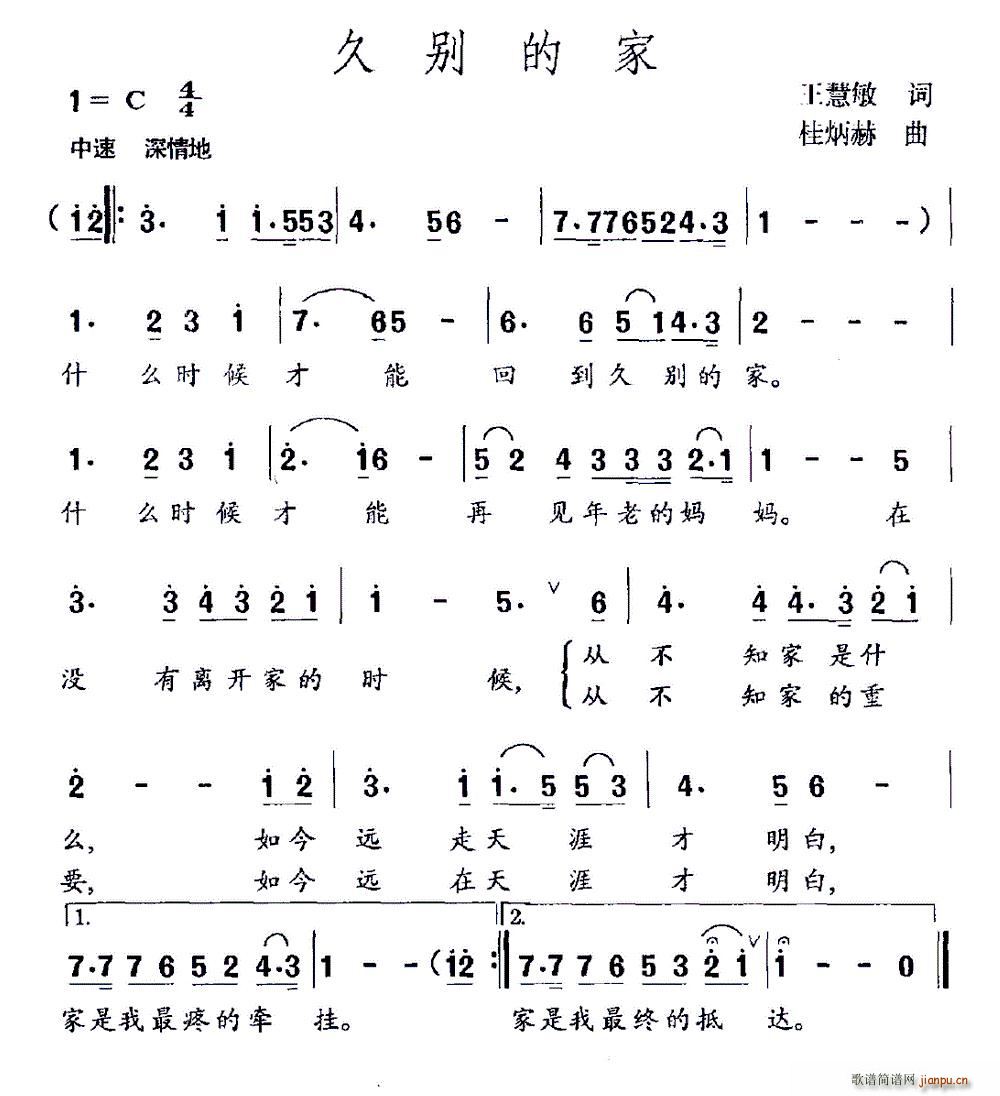 久别的家
1 = C 4/4
王慧敏 词
中速 深情地
桂炳赫 曲
( i 2 ‖: 3. i i. 5 5 3 | 4. 5 6 - | 7. 7 7 6 5 2 4. 3 | 1 - - - ) |
1. 2 3 i | 7. 6 5 - | 6. 6 5 1 4. 3 | 2 - - - |
什么时候才能回到久别的家。
1. 2 3 i | 2. i 6 - | 5 2 4 3 3 3 2. 1 | 1 - - 5 |
什么时候才能再见年老的妈妈。在
3. 3 4 3 2 i | i - 5. ∨ 6 | 4. 4 4. 3 2 i |
没有离开家的时候,
从不知家是什
从不知家的重
2 - - i 2 | 3. i i. 5 5 3 | 4. 5 6 - |
么, 如今远走天涯才明白,
要, 如今远在天涯才明白,
1. 2.
7. 7 7 6 5 2 4. 3 | 1 - - ( i 2 :‖ 7. 7 7 6 5 3 2 i ∨ | i - - 0 ‖
家是我最疼的牵挂。 家是我最终的抵达。
歌谱简谱网 jianpu.cn